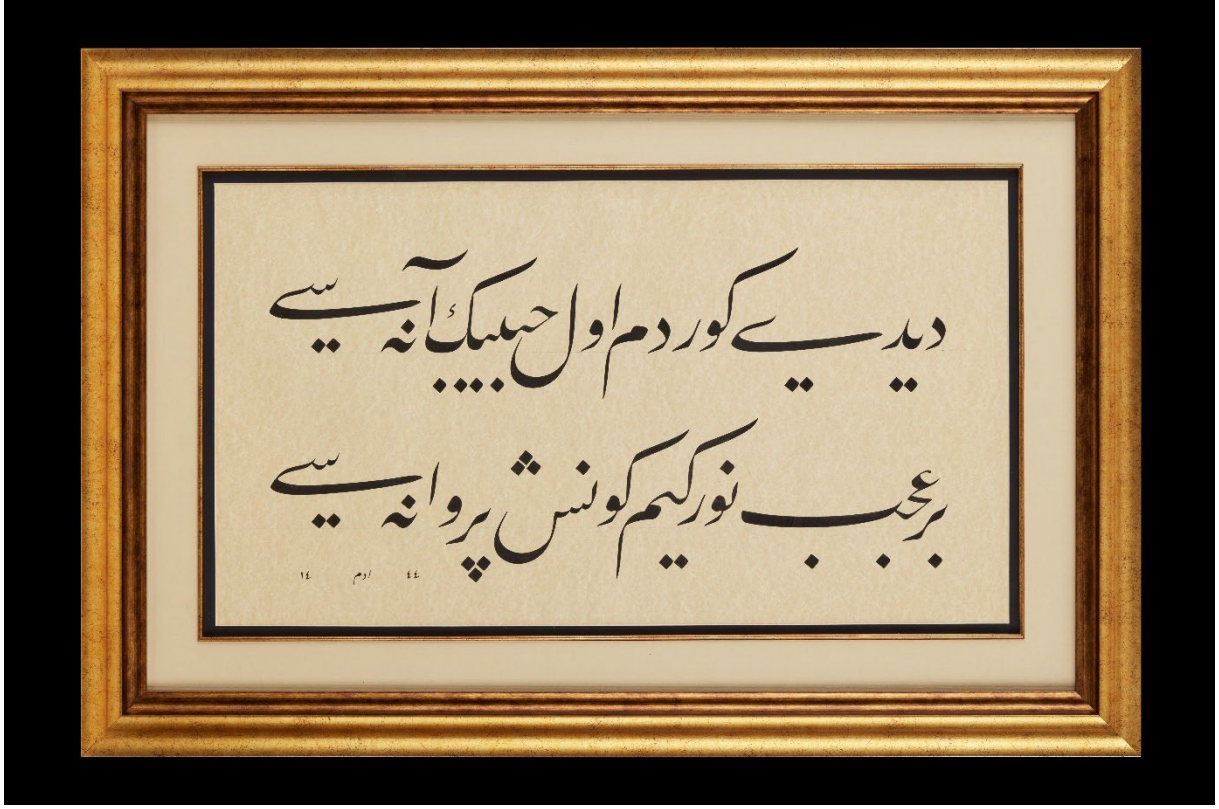 دیدی کوردم اول حبیبڭ آنه سی
بر عجب نور کیم کونش پروانه سی
٤٤ ادم ١٤